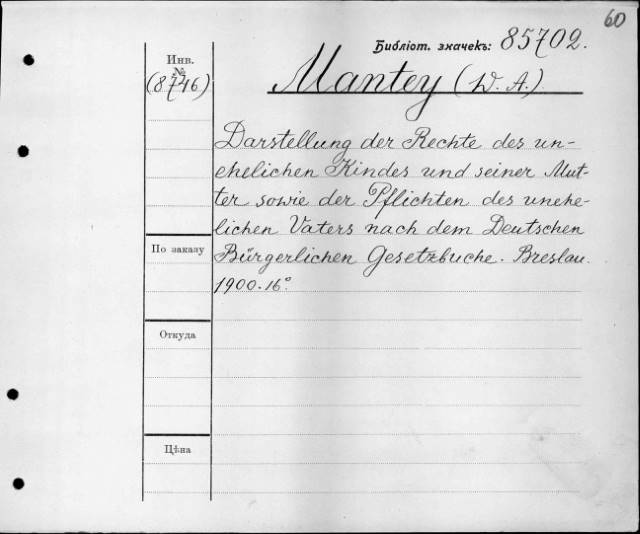 60
Библіот. значекъ: 85702.
Инв.
№
(8746)
Mantey (W. A.)
Darstellung der Rechte des un-
ehelichen Kindes und seiner Mut-
ter sowie der Pflichten des unehe-
lichen Vaters nach dem Deutschen
По заказу
Bürgerlichen Gesetzbuche. Breslau.
1900. 16°.
Откуда
Цѣна